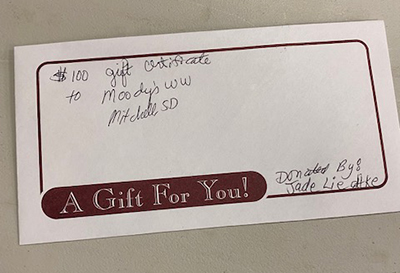 $100 gift certificate
to Moody's WW
Mitchell SD
Donated By:
Jade Liedtke
A Gift For You!